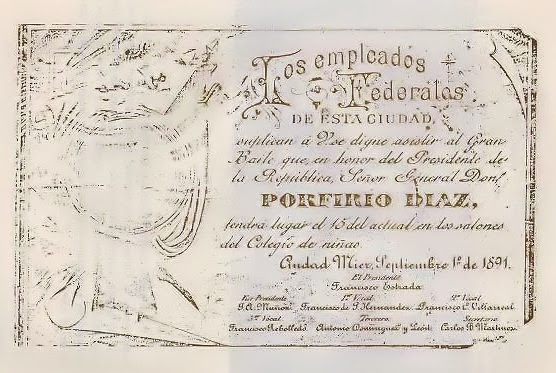 Los empleados
Federales
DE ESTA CIUDAD,
suplican á V. se digne asistir al Gran
Baile que, en honor del Presidente de
la República, Señor General Don
PORFIRIO DIAZ,
tendra lugar el 15 del actual en los salones
del Colegio de niñas
Ciudad Mier, Septiembre 1º de 1891.
El Presidente
Francisco Estrada
Vice Presidente 1er Vocal 2º Vocal
J. A. Muñoz Francisco de P. Hernandez Francisco L. Villarreal
3er Vocal Tesorero Secretario
Francisco Rebolledo Antonio Dominguez y León Carlos B. Martinez